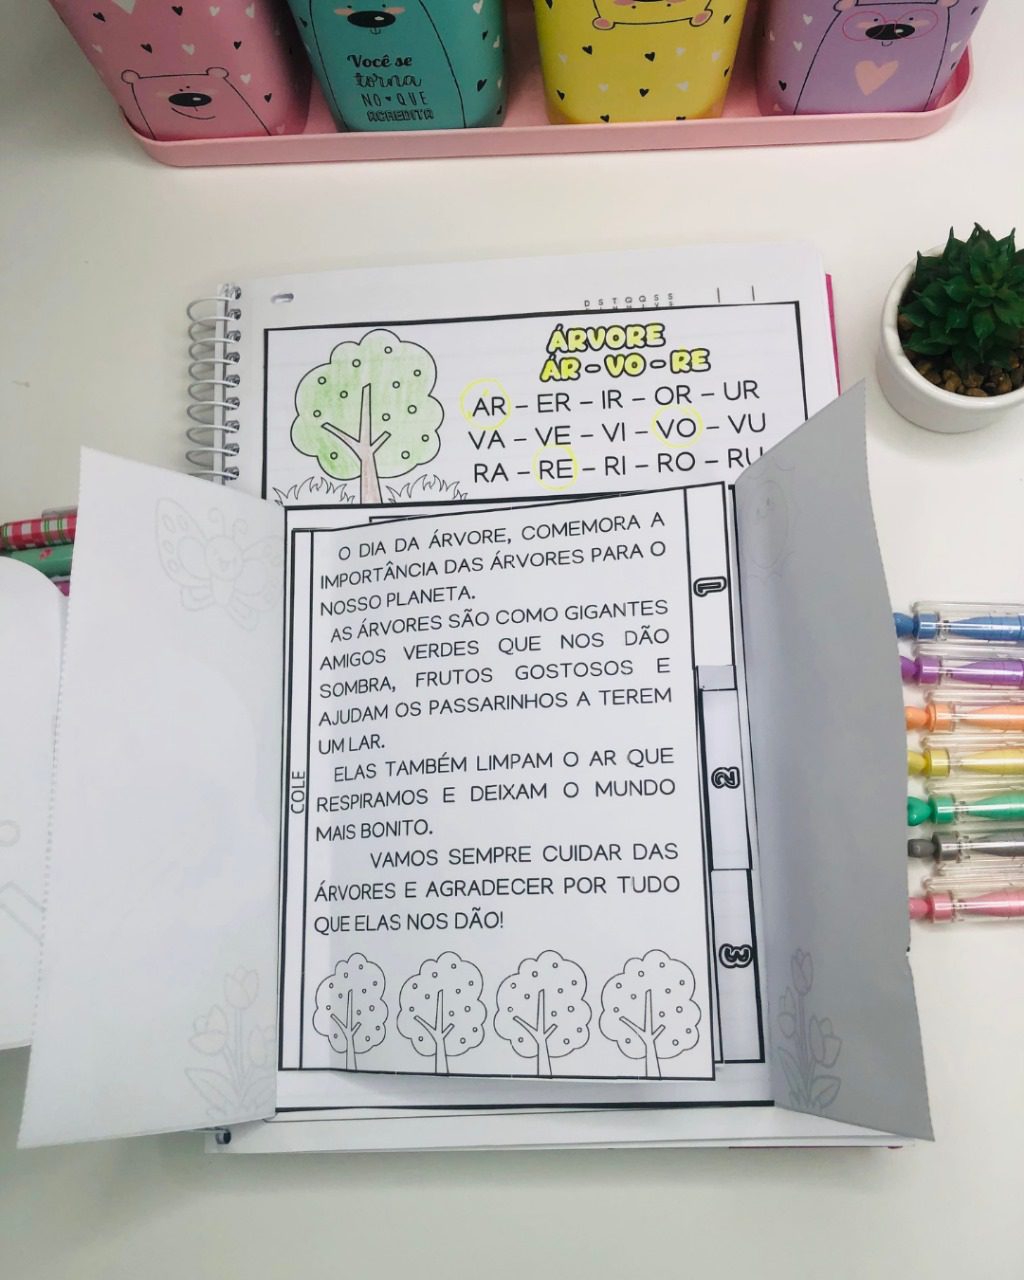 Você se
torna
NO QUE
ACREDITA
D S T Q Q S S
ÁRVORE
ÁR - VO - RE
AR – ER – IR – OR – UR
VA – VE – VI – VO – VU
RA – RE – RI – RO – RU
O DIA DA ÁRVORE, COMEMORA A
IMPORTÂNCIA DAS ÁRVORES PARA O
NOSSO PLANETA.
AS ÁRVORES SÃO COMO GIGANTES
AMIGOS VERDES QUE NOS DÃO
SOMBRA, FRUTOS GOSTOSOS E
AJUDAM OS PASSARINHOS A TEREM
UM LAR.
ELAS TAMBÉM LIMPAM O AR QUE
RESPIRAMOS E DEIXAM O MUNDO
MAIS BONITO.
VAMOS SEMPRE CUIDAR DAS
ÁRVORES E AGRADECER POR TUDO
QUE ELAS NOS DÃO!
COLE
1
2
3